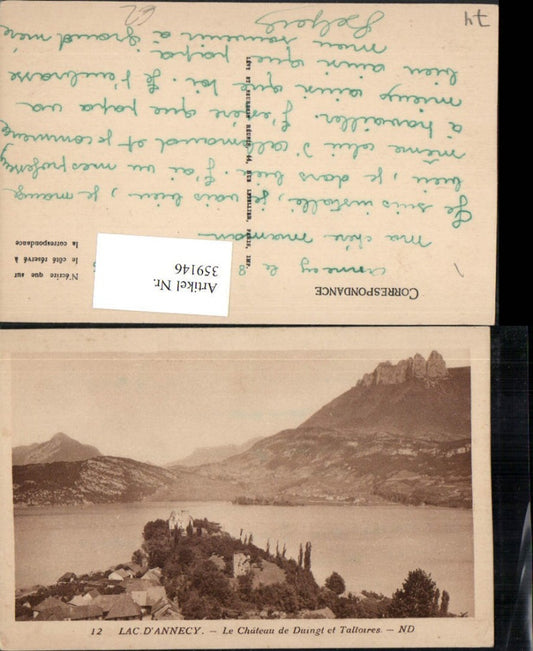 74
CORRESPONDANCE
N'écrire que sur
le côté réservé à
la correspondance
Artikel Nr.
359146
Annecy le 8
ma chère maman
Je suis installé, je vais bien, je mange
bien, je dors bien. J'ai vu mes professeurs
même celui d'allemand et je commence
à travailler. J'espère que papa va
mieux ainsi que toi. Je t'embrasse
bien ainsi que papa
mon souvenir à grand mère
LÉVY ET NEURDEIN RÉUNIS, 44, RUE LETELLIER, PARIS, IMP.
12 LAC D'ANNECY. — Le Château de Duingt et Talloires. — ND